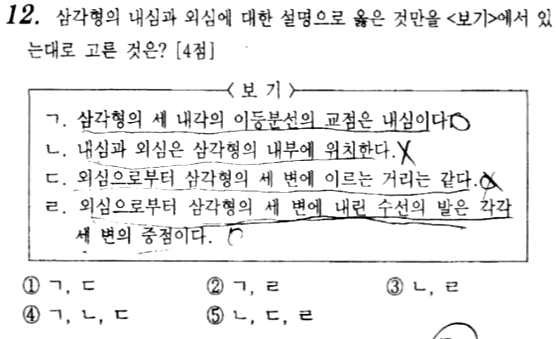 12. 삼각형의 내심과 외심에 대한 설명으로 옳은 것만을 <보기>에서 있
는대로 고른 것은? [4점]
<보 기>
ㄱ. 삼각형의 세 내각의 이등분선의 교점은 내심이다. O
ㄴ. 내심과 외심은 삼각형의 내부에 위치한다. X
ㄷ. 외심으로부터 삼각형의 세 변에 이르는 거리는 같다.
ㄹ. 외심으로부터 삼각형의 세 변에 내린 수선의 발은 각각
세 변의 중점이다. O
① ㄱ, ㄷ ② ㄱ, ㄹ ③ ㄴ, ㄹ
④ ㄱ, ㄴ, ㄷ ⑤ ㄴ, ㄷ, ㄹ